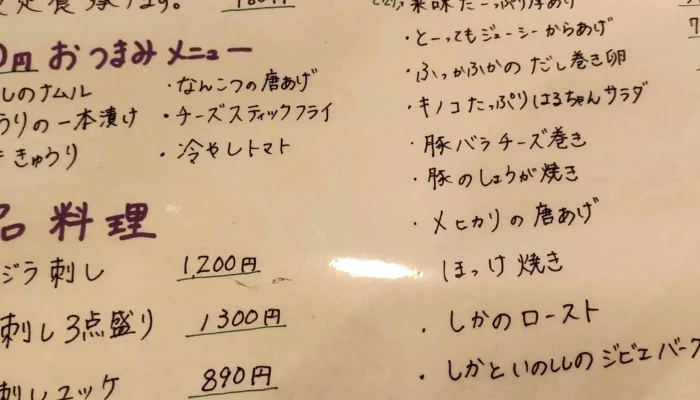 定食
0円 おつまみメニュー
しのナムル
うりの一本漬け
きゅうり
・なんこつの唐あげ
・チーズスティックフライ
・冷やしトマト
品料理
ジラ刺し 1,200円
刺し3点盛り 1300円
刺しユッケ 890円
薬味たーっぷり厚あげ
・とーってもジューシーからあげ
・ふっかふかのだし巻き卵
・キノコたっぷりはるちゃんサラダ
・豚バラチーズ巻き
・豚のしょうが焼き
・メヒカリの唐あげ
ほっけ焼き
・しかのロースト
・しかといのししのジビエバーグ